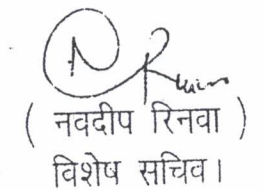 ( नवदीप रिनवा )
विशेष सचिव।